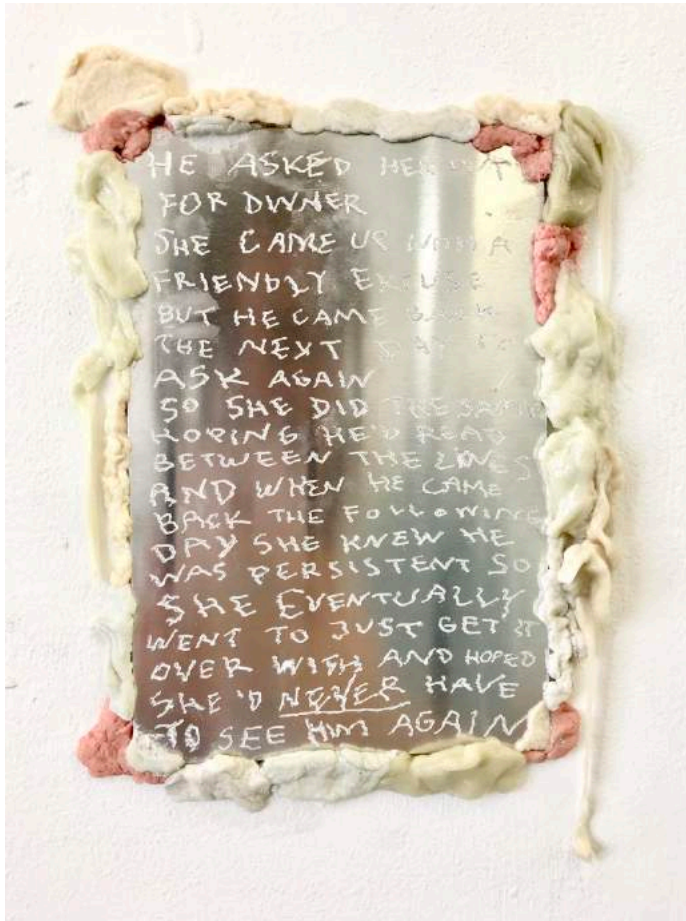 HE ASKED HER OUT
FOR DWNER
SHE CAME UP WITH A
FRIENDLY EXCUSE
BUT HE CAME BACK
THE NEXT DAY TO
ASK AGAIN
SO SHE DID THE SAME
HOPING HE'D READ
BETWEEN THE LINES
AND WHEN HE CAME
BACK THE FOLLOWING
DAY SHE KNEW HE
WAS PERSISTENT SO
SHE EVENTUALLY
WENT TO JUST GET IT
OVER WITH AND HOPED
SHE'D NEVER HAVE
TO SEE HIM AGAIN